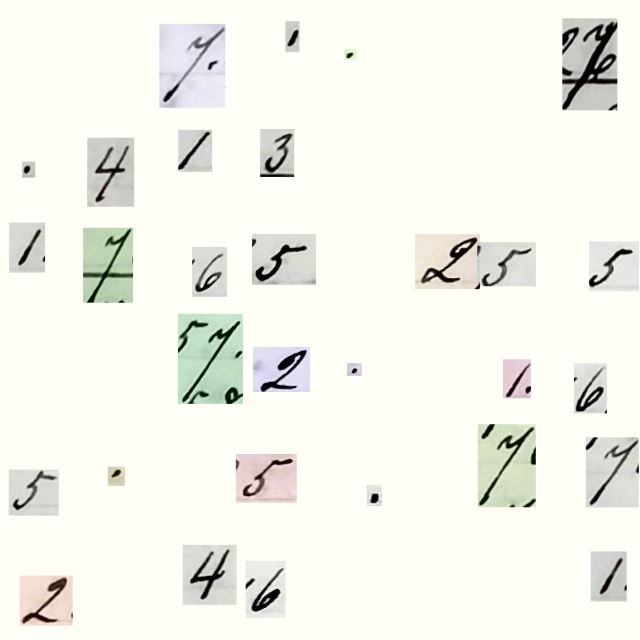 7. 1 . 7
. 4 1 3
1. 7 6 5 2 5 5
7. 2 . 1. 6
5 . 5 . 7 7
2 4 6 1.